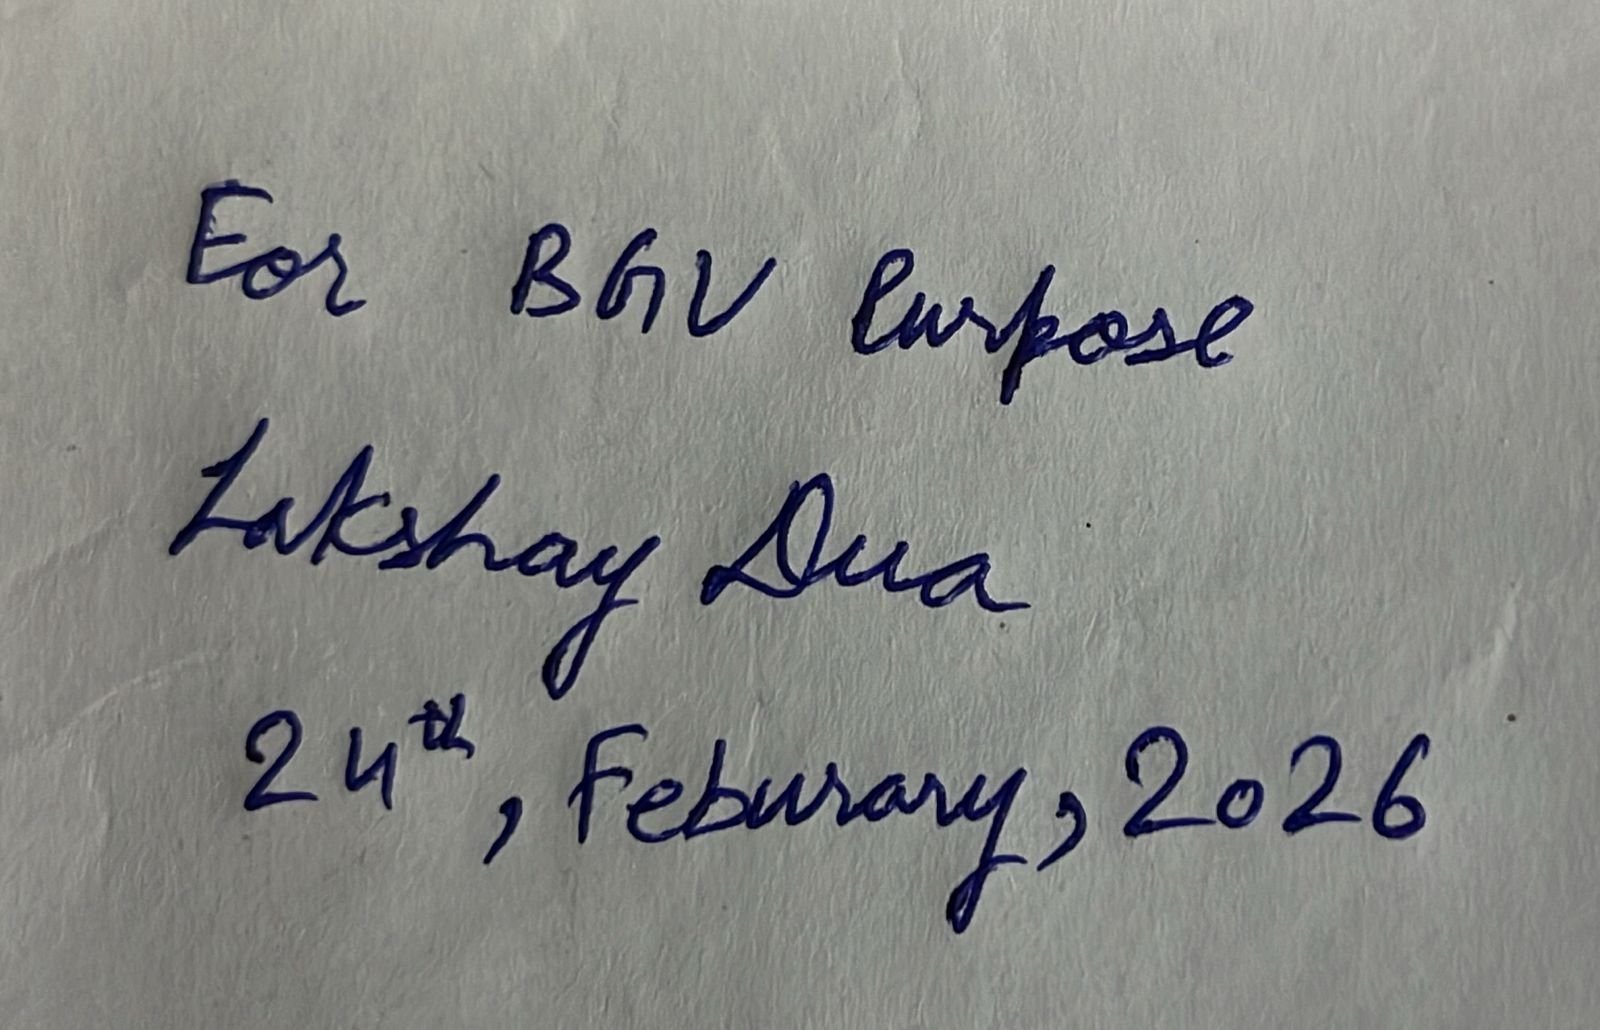 For BGV Purpose
Lakshay Dua
24th, Feburary, 2026